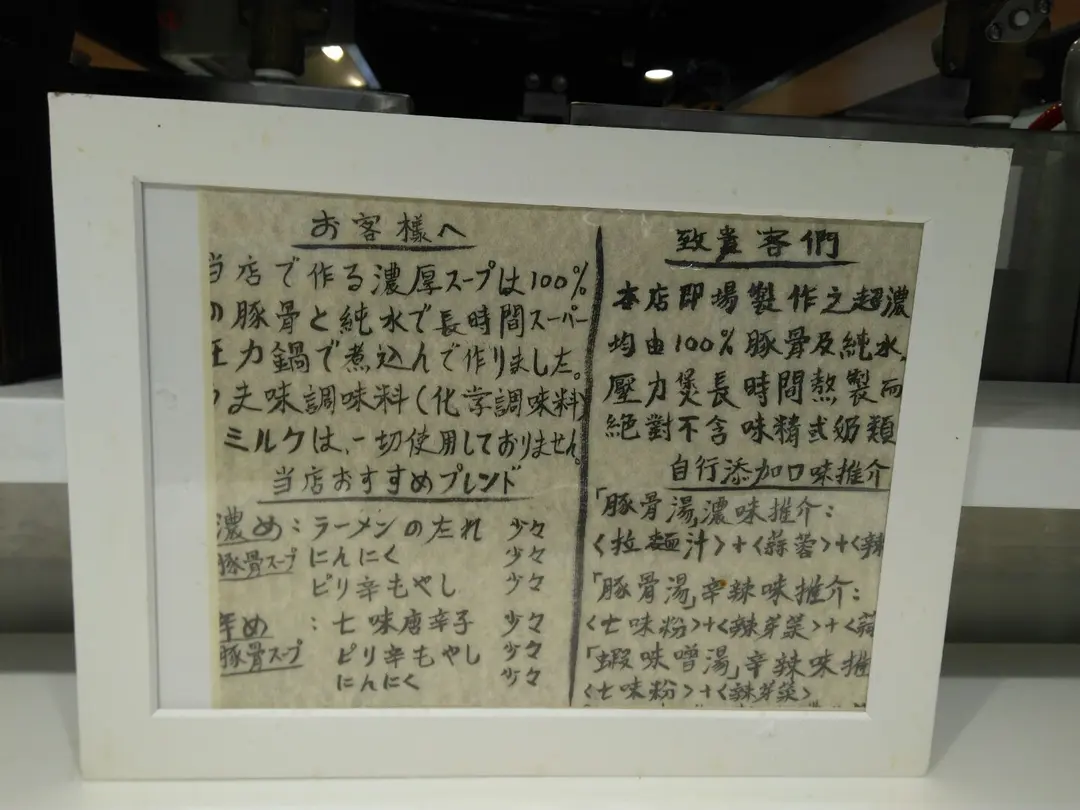 お客様へ
当店で作る濃厚スープは100%
の豚骨と純水で長時間スーパー
圧力鍋で煮込んで作りました。
うま味調味料(化学調味料)
ミルクは、一切使用しておりません。
当店おすすめブレンド
濃め：ラーメンのたれ 少々
豚骨スープ にんにく 少々
ピリ辛もやし 少々
辛め：七味唐辛子 少々
豚骨スープ ピリ辛もやし 少々
にんにく 少々
致貴客們
本店即場製作之超濃
均由100%豚骨及純水,
壓力煲長時間熬製而
絕對不含味精或奶類
自行添加口味推介
「豚骨湯」濃味推介：
<拉麵汁>+<蒜蓉>+<辣
「豚骨湯」辛辣味推介：
<七味粉>+<辣芽菜>+<蒜
「蝦味噌湯」辛辣味推
<七味粉>+<辣芽菜>